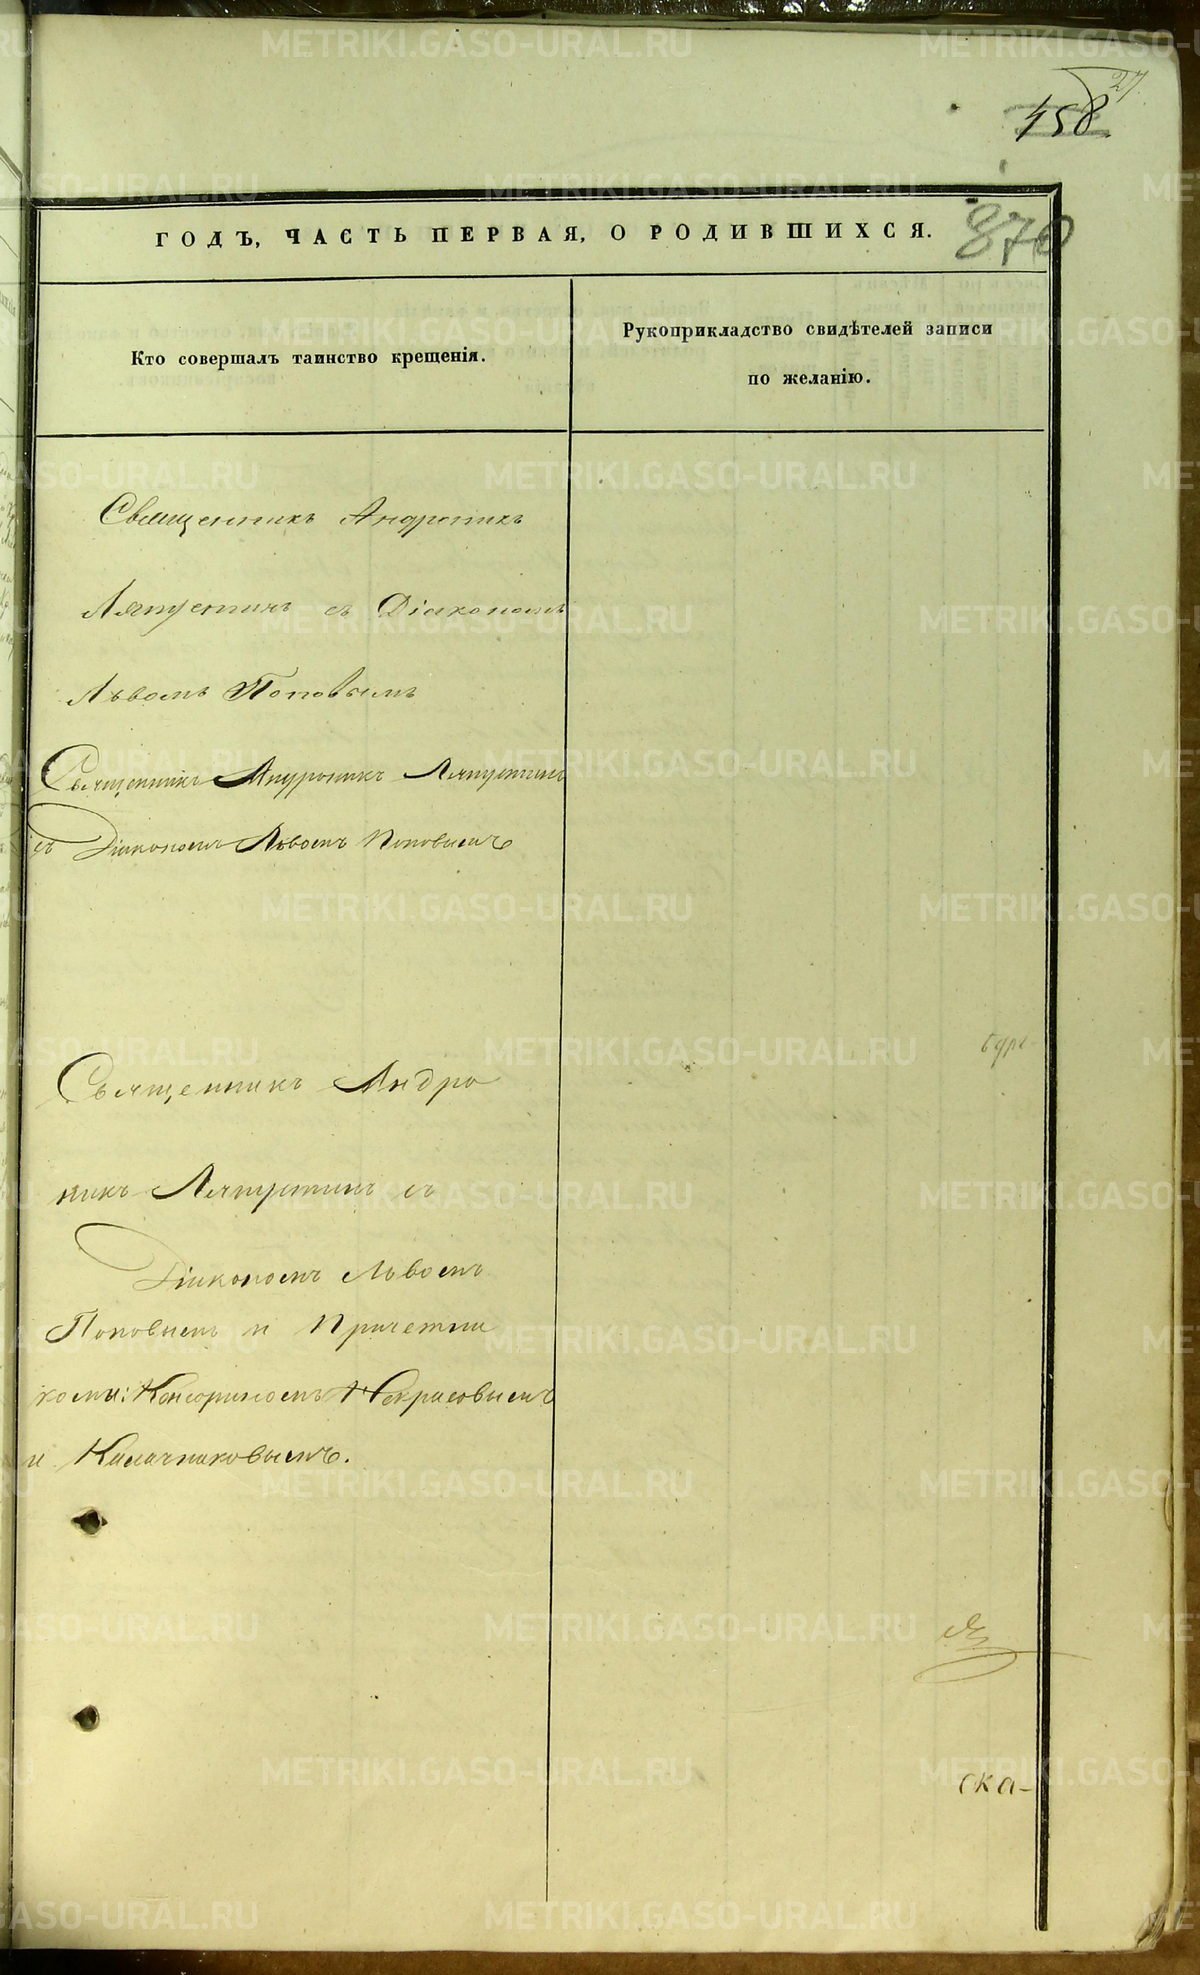 27.
458
ГОДЪ, ЧАСТЬ ПЕРВАЯ, О РОДИВШИХСЯ.
870
Кто совершалъ таинство крещенія.
Рукоприкладство свидѣтелей записи
по желанію.
Священникъ Андроникъ
Ляпустинъ съ Діакономъ
Львомъ Поповымъ
Священникъ Андроникъ Ляпустинъ
съ Діакономъ Львомъ Поповымъ
Священникъ Андро
никъ Ляпустинъ съ
Діакономъ Львомъ
Поповымъ и Причетни
ками: Некрасовымъ
и Калачниковымъ.
ска-
METRIKI.GASO-URAL.RU